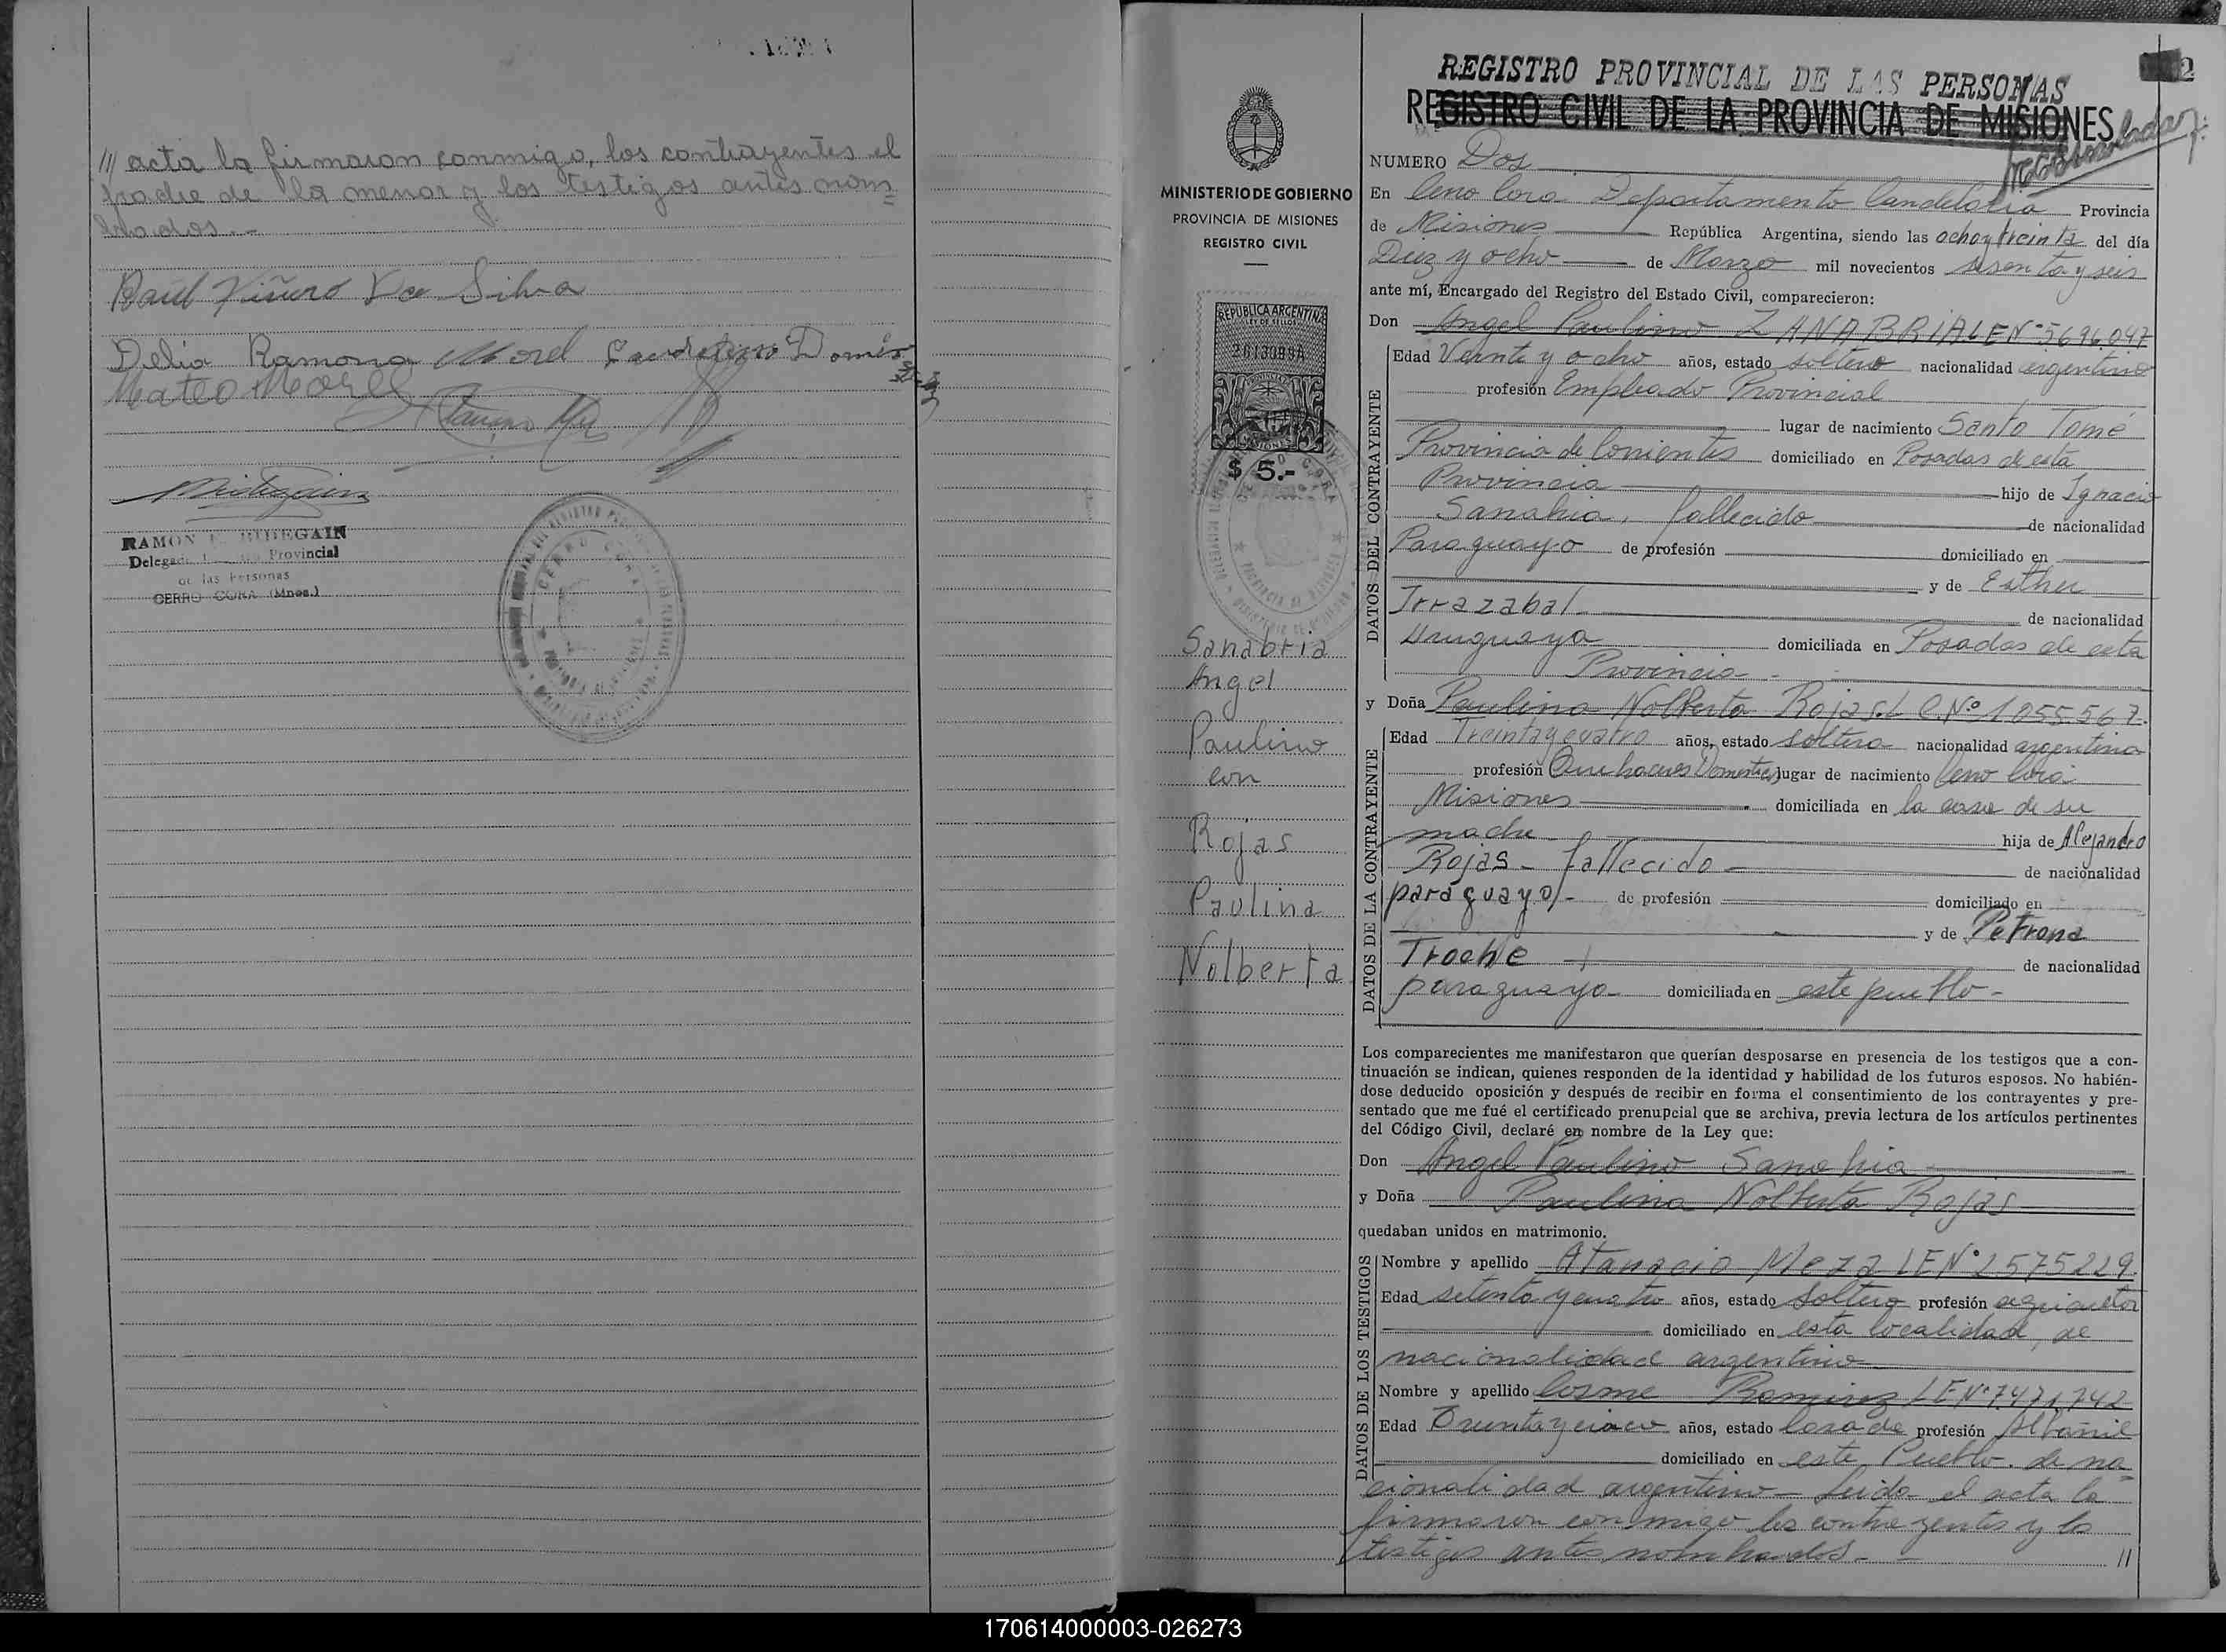 /// acta la firmaron conmigo, los contrayentes el
padre de la menor y los testigos antes nom=
brados.-
Delia Ramona Morel
RAMON
Delegado Provincial
de las Personas
CERRO CORA (Mnes.)
MINISTERIO DE GOBIERNO
PROVINCIA DE MISIONES
REGISTRO CIVIL
REPUBLICA ARGENTINA
LEY DE SELLOS
$ 5.-
Sanabria
Angel
Paulino
con
Rojas
Paulina
Nolberta
REGISTRO PROVINCIAL DE LAS PERSONAS
REGISTRO CIVIL DE LA PROVINCIA DE MISIONES
2
NUMERO Dos
En Cerro Cora Departamento Candelaria Provincia
de Misiones República Argentina, siendo las ocho y treinta del día
Diez y ocho de Marzo mil novecientos sesenta y seis
ante mí, Encargado del Registro del Estado Civil, comparecieron:
Don Angel Paulino ZANABRIA LE Nº 5696.047
DATOS DEL CONTRAYENTE
Edad Veinte y ocho años, estado soltero nacionalidad argentino
profesión Empleado Provincial
lugar de nacimiento Santo Tomé
Provincia de Corrientes domiciliado en Posadas de esta
Provincia hijo de Ignacio
Sanabria, fallecido de nacionalidad
Paraguayo de profesión domiciliado en
y de Esther
Irrazabal de nacionalidad
Uruguaya domiciliada en Posadas de esta
Provincia -
y Doña Paulina Nolberta Rojas. L C. Nº 1055567.
DATOS DE LA CONTRAYENTE
Edad Treinta y cuatro años, estado soltera nacionalidad argentina
profesión Quehaceres Domesticos lugar de nacimiento Cerro Corá
Misiones domiciliada en la casa de su
madre hija de Alejandro
Rojas - fallecido - de nacionalidad
paraguayo - de profesión domiciliado en
y de Petrona
Troche de nacionalidad
paraguaya domiciliada en este pueblo -
Los comparecientes me manifestaron que querían desposarse en presencia de los testigos que a con-
tinuación se indican, quienes responden de la identidad y habilidad de los futuros esposos. No habién-
dose deducido oposición y después de recibir en forma el consentimiento de los contrayentes y pre-
sentado que me fué el certificado prenupcial que se archiva, previa lectura de los artículos pertinentes
del Código Civil, declaré en nombre de la Ley que:
Don Angel Paulino Sanabria
y Doña Paulina Nolberta Rojas
quedaban unidos en matrimonio.
DATOS DE LOS TESTIGOS
Nombre y apellido Atanacio Meza LE Nº 2575229.
Edad setenta y cuatro años, estado soltero profesión agricultor
domiciliado en esta localidad, de
nacionalidad argentino
Nombre y apellido Cosme Ramirez LE Nº 7.471.742
Edad Treinta y cinco años, estado Casado profesión Albañil
domiciliado en este Pueblo. de na
cionalidad argentino - Leida el acta la
firmaron conmigo los contrayentes y los
testigos antes nombrados. - //
170614000003-026273